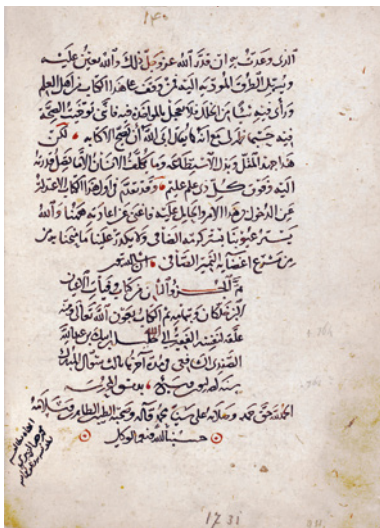 ١٤٠
الذي وعدت به ان قدر الله عز وجل ذلك والله يعين عليه
ويسهل الطرق المودية اليه فمن وقف على هذا الكتاب من اهل العلم
ورأى فيه شيئا من الخلل فلا يعجل بالمواخذة فيه فاني توخيت الصحة
فيه حسبما ظهر لي مع انه كما يقال ابى الله ان يصح الا كتابه لكن
هذا جهد المقل وبذل الاستطاعة وما يكلف الانسان الا ما تصل قدرته
اليه وفوق كل ذي علم عليم وقد تقدم في اول هذا الكتاب الاعتذار
عن الدخول في هذا الامر والحامل عليه فاغنى عن اعادته ههنا والله
يستر عيوبنا بستر كرمه الضافي ولا يكدر علينا ما منحنا من
من مشرع اغضائه النمير الصافي ان شاء الله تعالى
تم الجزو الثاني من كتاب وفيات الاعيان
لابن خلكان وبتمامه تم الكتاب بعون الله تعالى ومنه
علقه لنفسه الفقير الى الله خليل ابن ايبك بن عبد الله
الصفدي الشافعي في مدة آخرها ثالث شوال المبارك
سنة
الحمد لله حق حمده وصلاته على سيدنا محمد وآله وصحبه الطيبين الطاهرين وسلامه
حسبنا الله ونعم الوكيل
1731